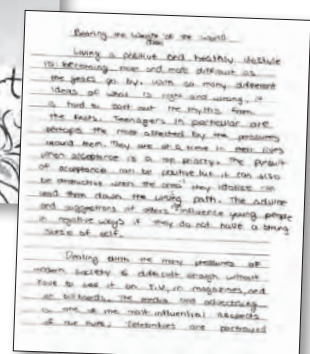 Bearing the Weight of the World
Living a positive and healthy lifestyle
is becoming more and more difficult as
the years go by. With so many different
ideas of what is right and wrong, it
is hard to sort out the myths from
the facts. Teenagers in particular are
perhaps the most affected by the pressures
around them. They are at a time in their lives
when acceptance is a top priority. The pursuit
of acceptance can be positive but it can also
be destructive when the ones they idolize can
lead them down the wrong path. The advice
and suggestions of others influence young people
in negative ways if they do not have a strong
sense of self.
Dealing with the many pressures of
modern society is difficult enough without
have to see it on T.V., in magazines, and
on billboards. The media and advertising
is one of the most influential aspects
of our lives. Celebrities are portrayed